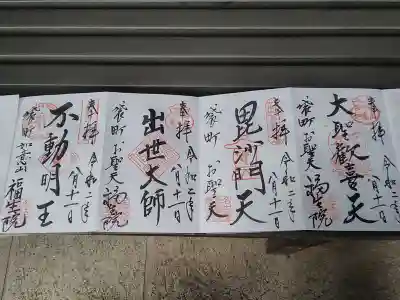 奉拝
令和二年
八月十一日
大聖歓喜天
袋町 お聖天
福生院
奉拝
令和二年
八月十一日
毘沙門天
袋町 お聖天
福生院
奉拝
令和二年
八月十一日
出世大師
袋町 お聖天
奉拝
令和二年
八月十一日
不動明王
袋町
如意山
福生院